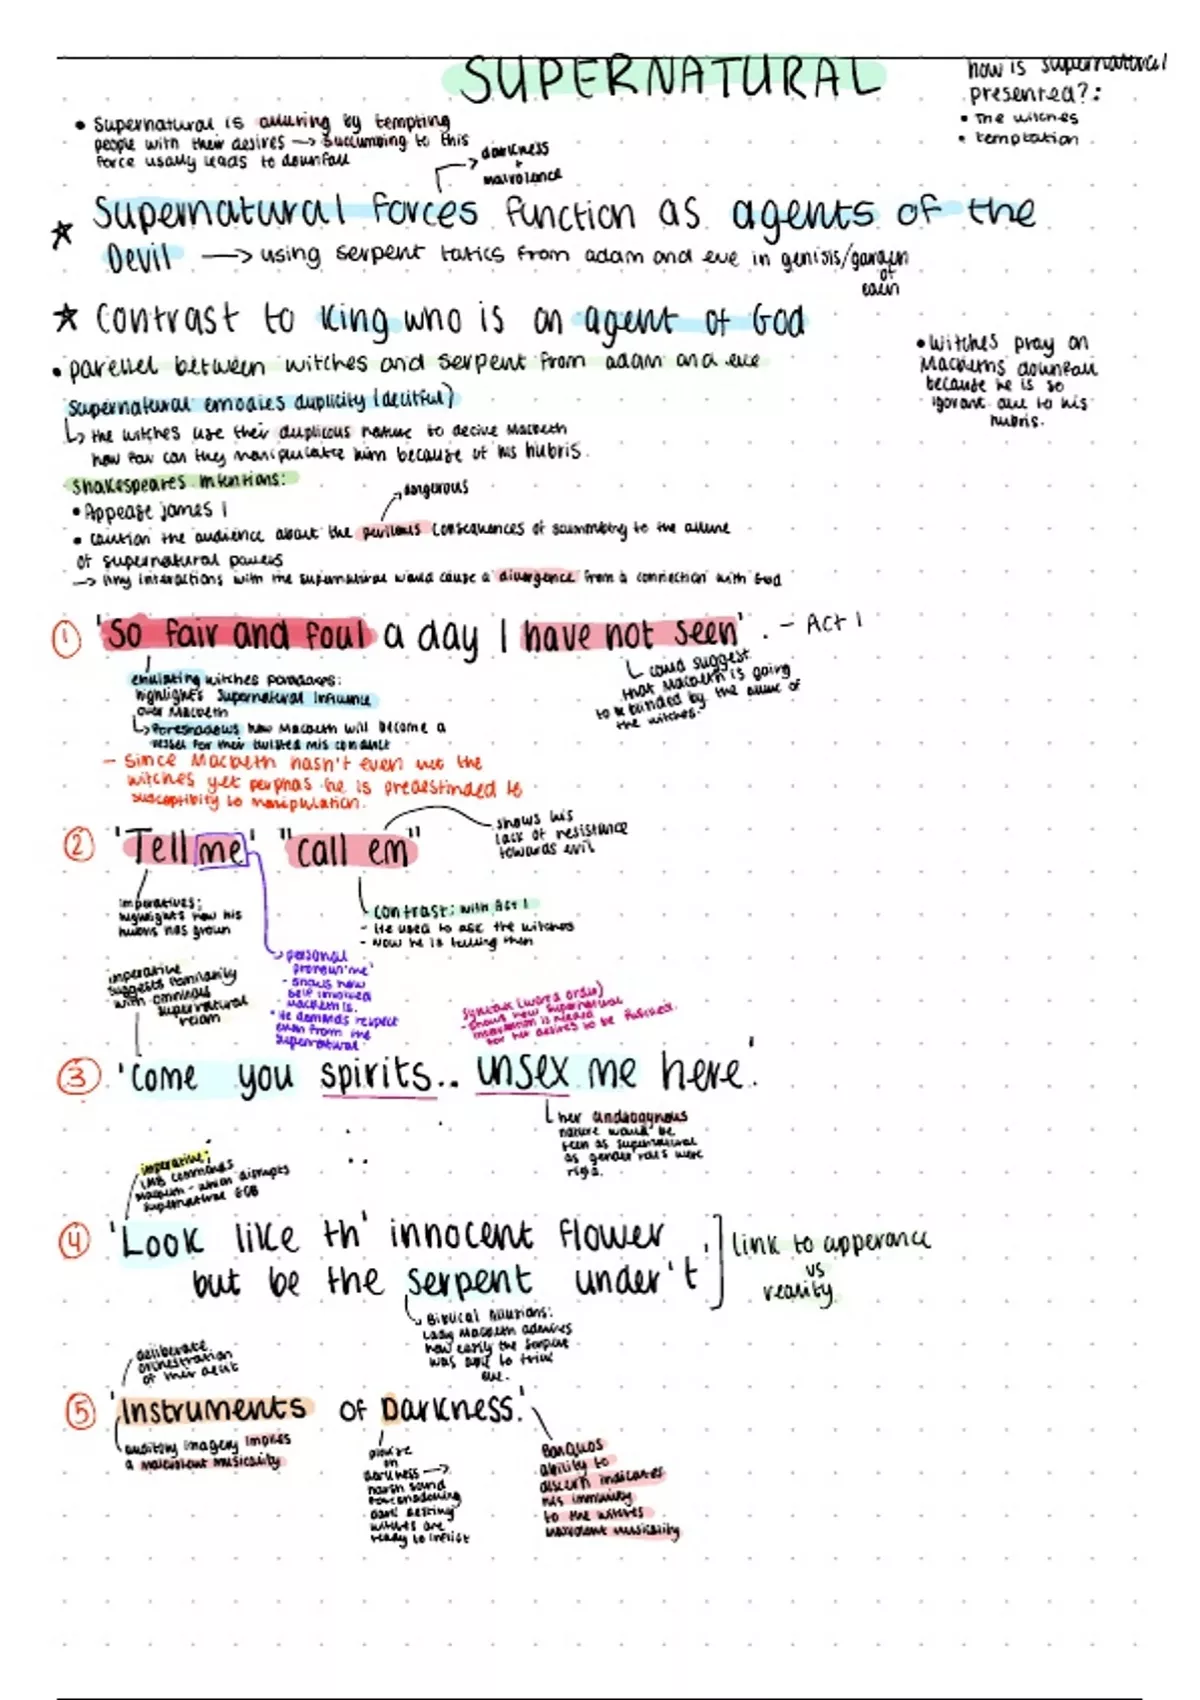 SUPERNATURAL
how is supernatural
presented?:
• The witches
• temptation
• Supernatural is alluring by tempting
people with their desires → succumbing to this
force usually leads to downfall
darkness
+
malvolence
☆ Supernatural forces function as agents of the
Devil → using serpent tatics from adam and eve in genisis/garden
of
eden
☆ Contrast to King who is an agent of God
• parellel between witches and serpent from adam and eve
• witches pray on
Macbeths downfall
because he is so
igorant due to his
hubris.
Supernatural emodies duplicity (decitful)
↳ the witches use their duplicous nature to decive Macbeth
how far can they manipulate him because of his hubris.
Shakespeares intentions:
• Appease james I
dangerous
• caution the audience about the perilous consequences of succumbing to the allure
of supernatural powers
→ Any interactions with the supernatural would cause a divergence from a connection with God
① 'So fair and foul a day I have not seen'. - Act 1
↳ could suggest
that Macbeth is going
to be blinded by the allure of
the witches.
emulating witches paradoxes:
highlights Supernatural influence
over Macbeth
↳ Foreshadows how Macbeth will become a
vessel for their twisted mis conduct
- Since Macbeth hasn't even met the
witches yet perphas he is predestinded to
susceptibity to manipulation.
② 'Tell me' "call em"
shows his
lack of resistance
towards evil
imperatives:
highlights how his
hubris has grown
- contrast: with Act 1
- He used to ask the witches
- Now he is telling them
personal
pronoun 'me'
- shows how
self involved
Macbeth is.
• He demands respect
even from the
supernatural
imperative
suggests familiarity
with ominous
supernatural
realm
Syntax (word order)
- shows how supernatural
intervention is needed
for her desires to be fulfilled.
③ 'Come you spirits.. unsex me here.'
↳ her androgynous
nature would be
seen as supernatural
as gender roles were
rigid.
imperative:
LMB commands
Macbeth - which disrupts
supernatural GCB
④ 'Look like th' innocent flower
but be the serpent under't
link to apperance
vs
reality
↳ Biblical Allusions:
Lady Macbeth admires
how easily the serpent
was able to trick
eve.
deliberate
orchestration
of their deceit
⑤ 'Instruments of Darkness.'
auditory imagery implies
a malevolent musicality
plosive
on
darkness →
harsh sound
foreshadowing
dark
witches are
ready to inflict
Banquos
ability to
discern indicates
his immunity
to the witches
malevolent musicality